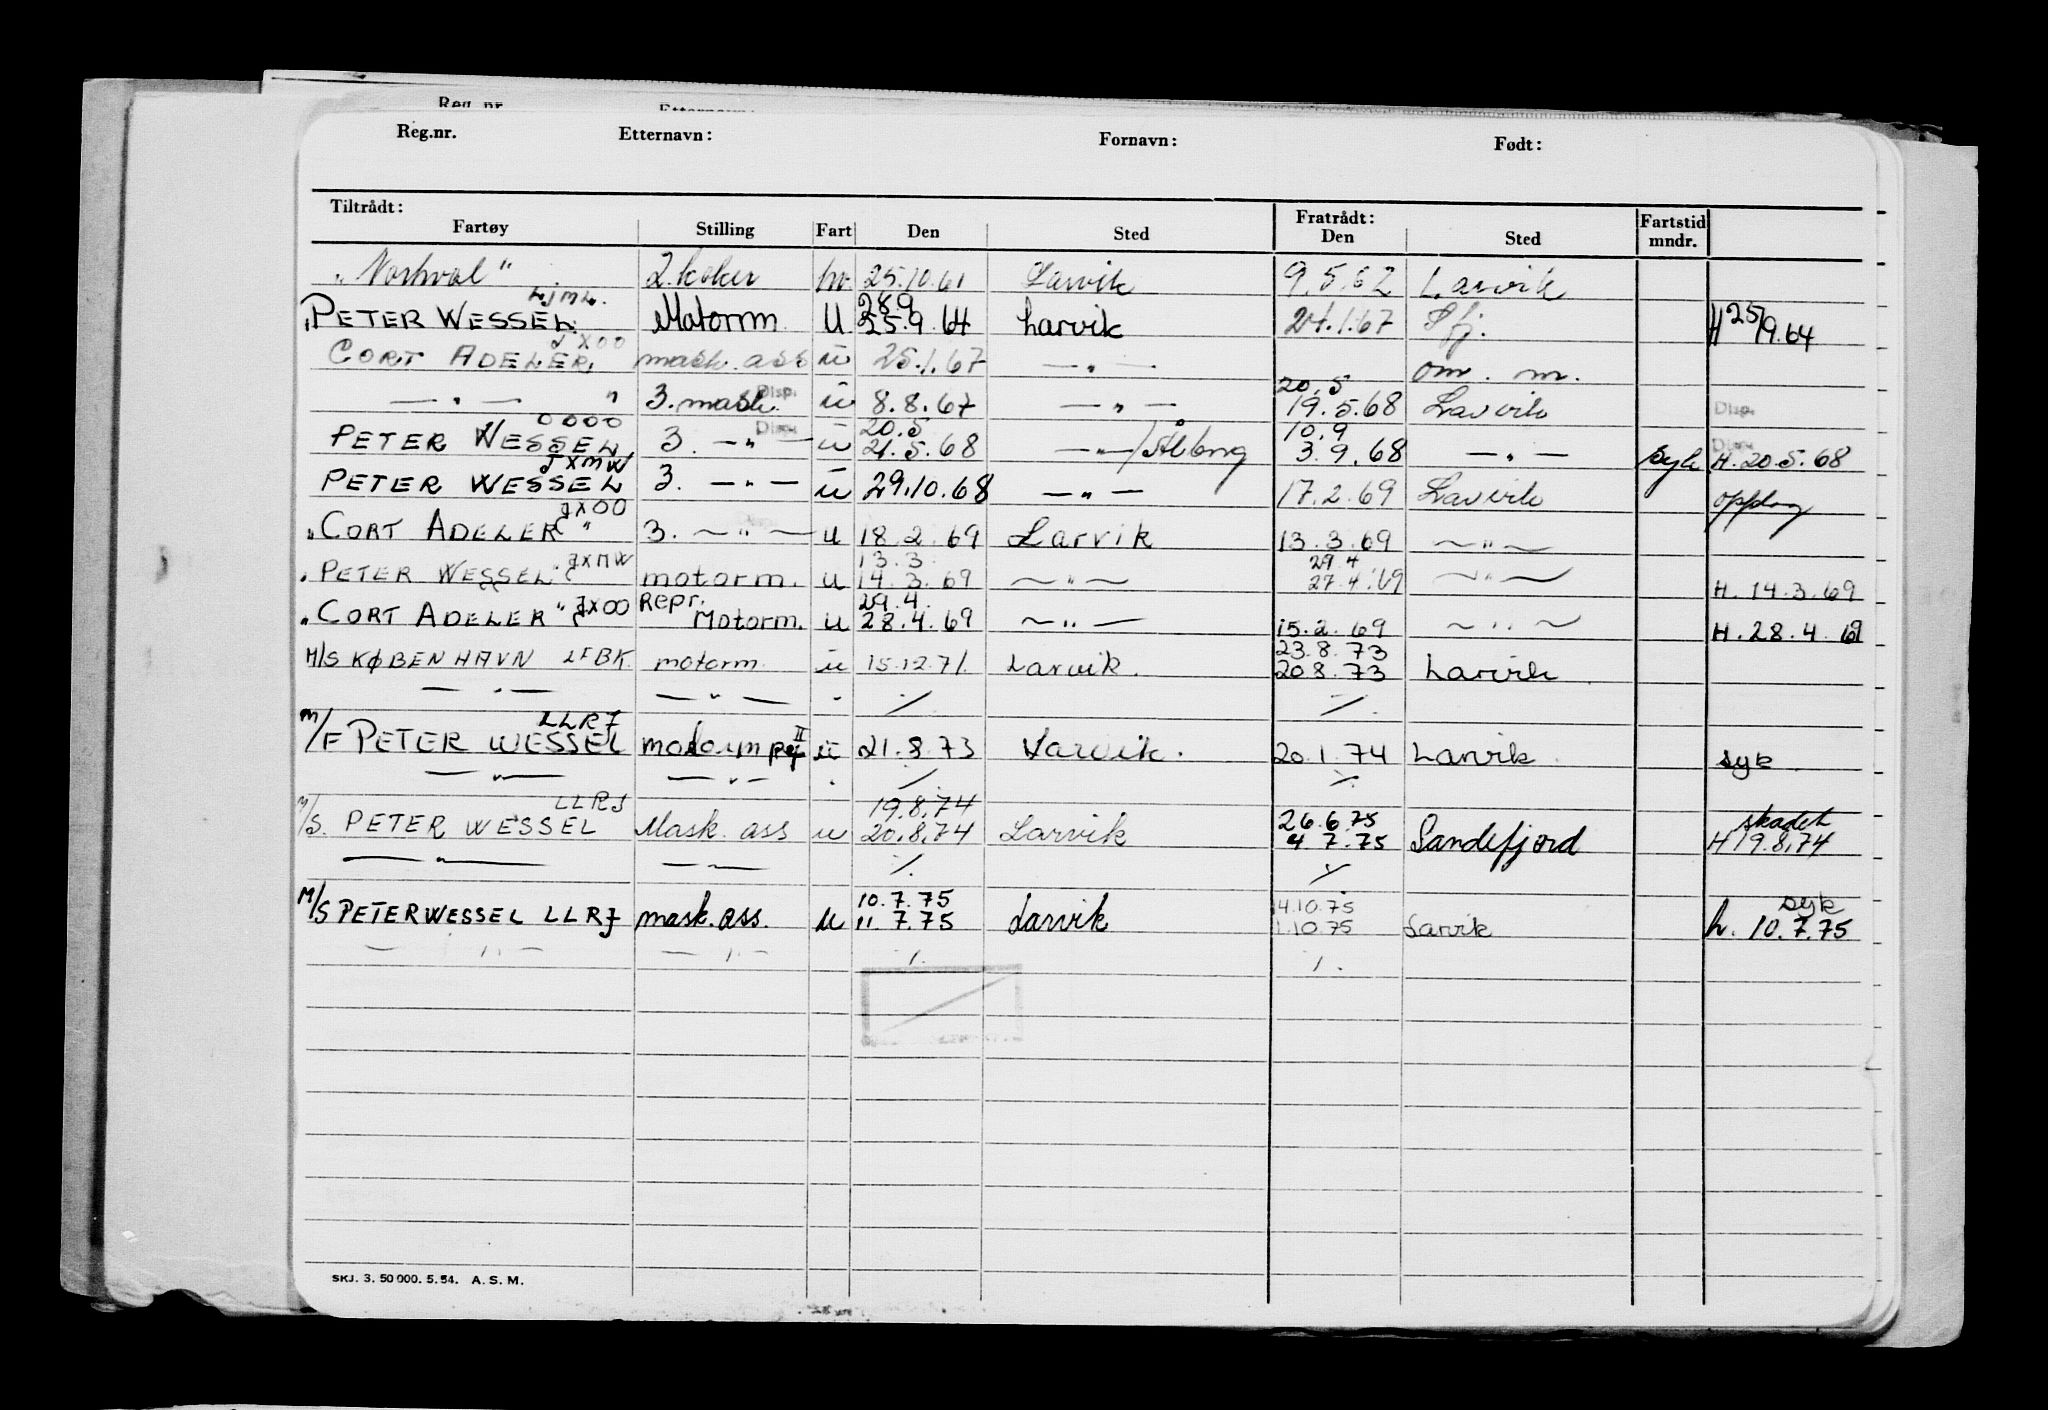 Reg.nr. Etternavn:
Reg.nr. Etternavn: Fornavn: Født:
Tiltrådt: Fratrådt: Fartstid
Fartøy Stilling Fart Den Sted Den Sted mndr.
"Norhval" 2. kokk hv. 25.10.61 Larvik 9.5.62 Larvik
LJML. 28.9
"PETER WESSEL Motorm. U 25.9.64 Larvik 24.1.67 Sfj. H 25/9.64
JXOO
CORT ADELER, mask. ass ü 25.1.67 — " — om. m.
Disp. 20.5
— " — " 3. mask. ü 8.8.67 — " — 19.5.68 Larvik Disp.
OOOO Disp. 20.5 10.9 Disp.
PETER WESSEL 3. — " — ü 21.5.68 — " — / Ålborg 3.9.68 — " — Syk H. 20.5.68
JXMW
PETER WESSEL 3. — " — ü 29.10.68 — " — 17.2.69 Larvik oppdrag
JXOO
"CORT ADELER" 3. — " — U 18.2.69 Larvik 13.3.69 — " —
JXMW 13.3 29.4
"PETER WESSEL" motorm. U 14.3.69 — " — 27.4.69 — " — H. 14.3.69
Repr. 29.4.
"CORT ADELER" JXOO Motorm. U 28.4.69 — " — 15.2.69 — " — H. 28.4.69
23.8.73
M/S KØBENHAVN LFBK. motorm. ü 15.12.71. Larvik. 20.8.73 Larvik
— " — — " — " ./. ./.
LLRJ II
M/F PETER WESSEL motorm rep ü 21.8.73 Larvik. 20.1.74 Larvik. syk
— " — — " — " ./. ./.
LLRJ 19.8.74 26.6.75 skadet
M/S. PETER WESSEL Mask. ass u 20.8.74 Larvik 4.7.75 Sandefjord H 19.8.74
— " — — " — ./. ./.
10.7.75 14.10.75 syk
M/S PETER WESSEL LLRJ mask. ass. U 11.7.75 Larvik 1.10.75 Larvik h. 10.7.75
— " — — " — ./. ./.
SKJ. 3. 50 000. 5. 54. A. S. M.